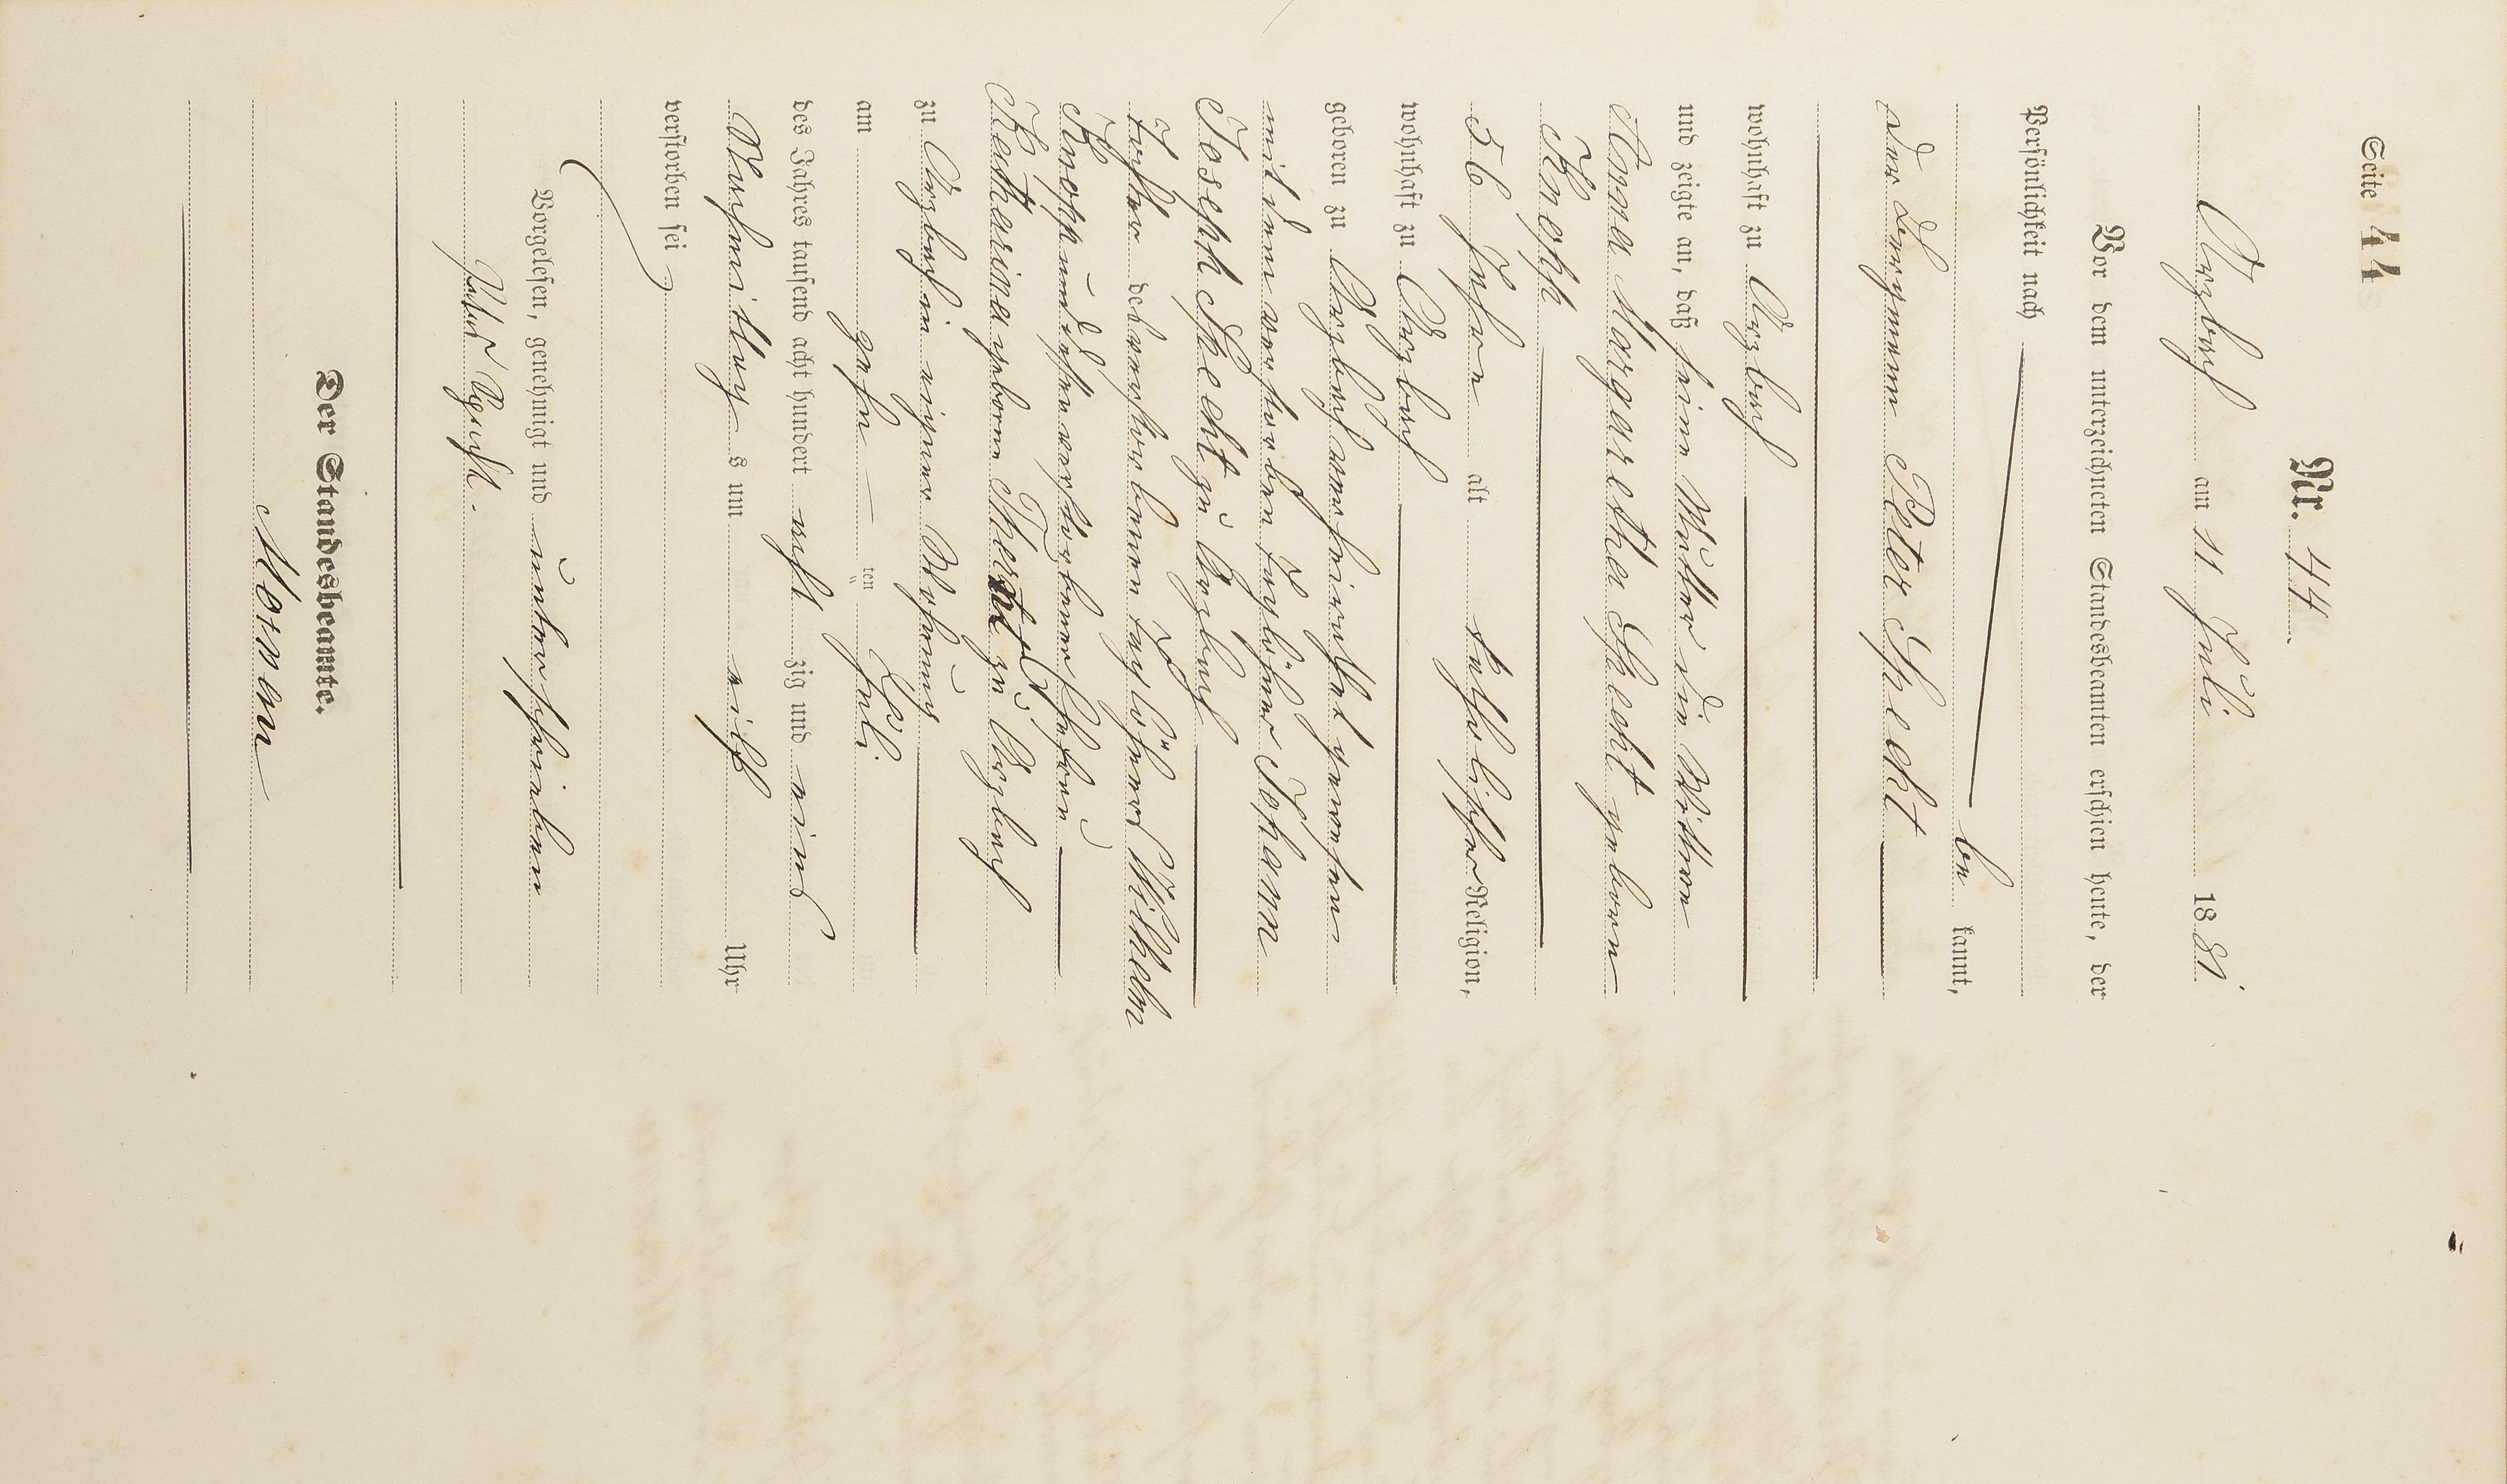 Seite 44
Nr. 44
Arzbach am 11 Juli 1881.
Vor dem unterzeichneten Standesbeamten erschien heute, der
Persönlichkeit nach
be kannt,
der Bergmann Peter Specht
wohnhaft zu Arzbach
und zeigte an, daß seine Mutter die Wittwe
Anna Margaretha Specht geborne
Knopp
56 Jahre alt katholischer Religion,
wohnhaft zu Arzbach
geboren zu Arzbach verheirathet gewesen
mit dem verstorbenen Taglöhner Johann
Joseph Specht zu Arzbach
Tochter des verstorbenen Taglöhners Wilhelm
Knopp und dessen verstorbener Ehefrau
Katharina geborne zu Arzbach
zu Arzbach in eigener Wohnung
am zehn ten Juli
des Jahres tausend acht hundert acht zig und eins
Nachmittag s um eilf Uhr
verstorben sei
Vorgelesen, genehmigt und unterschrieben
Peter Specht.
Der Standesbeamte.